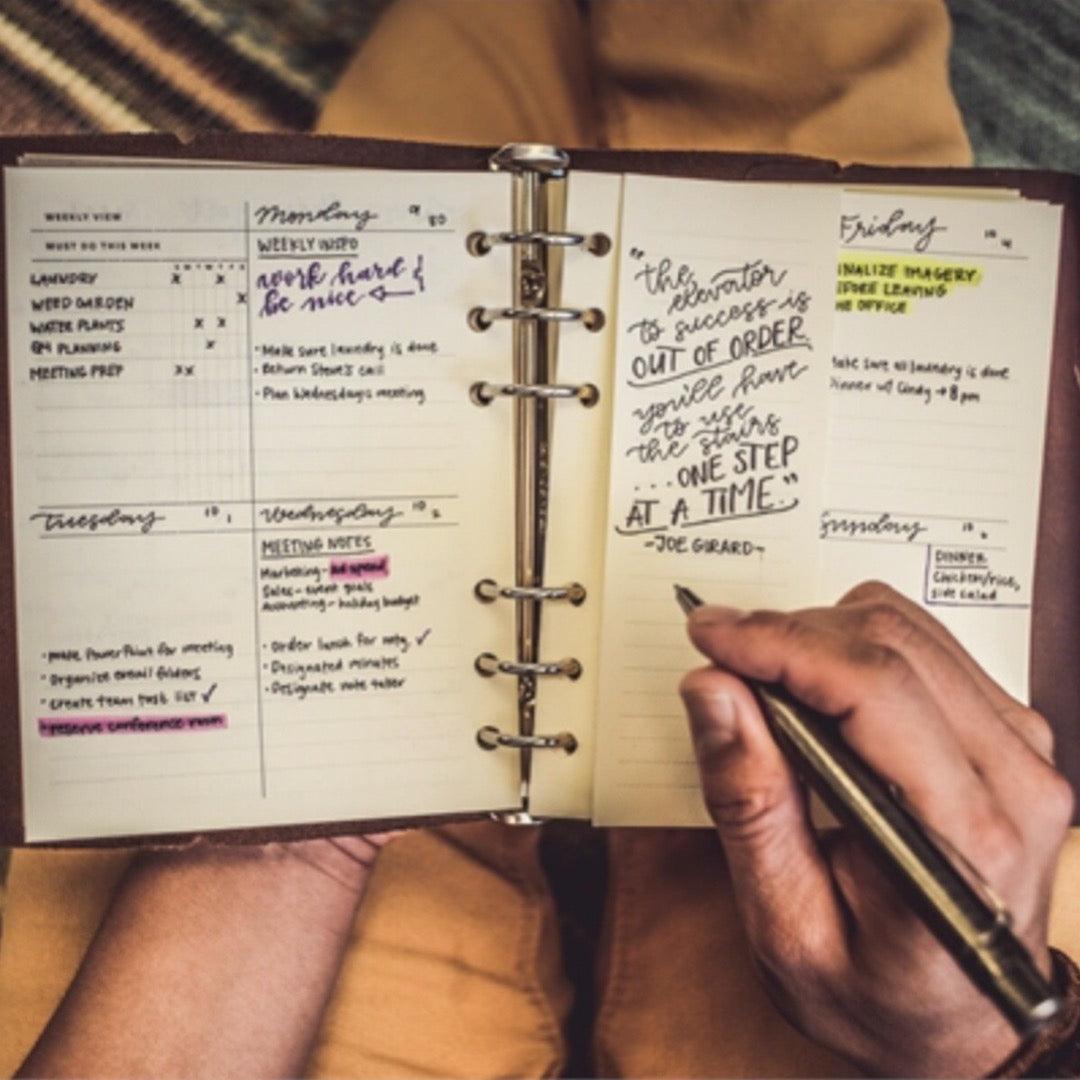 WEEKLY VIEW
MUST DO THIS WEEK
S M T W T F S
LAUNDRY X X
WEED GARDEN X
WATER PLANTS X X
PLANNING X
MEETING PREP X X
Monday 9 30
WEEKLY INSPO
work hard &
be nice
• Make sure laundry is done
• Return Steve's call
• Plan Wednesday's meeting
Tuesday 10 1
• make PowerPoint for meeting
• Organize email folders
• Create team task list ✓
• reserve conference room
Wednesday 10 2
MEETING NOTES
Marketing - ad spend
Sales - event goals
Accounting - holiday budget
• Order lunch for mtg. ✓
• Designated minutes
• Designate note taker
"the
elevator
to success is
OUT OF ORDER.
you'll have
to use
the stairs
...ONE STEP
AT A TIME."
-JOE GIRARD-
Friday 10
INALIZE IMAGERY
EFORE LEAVING
HE OFFICE
ake sure all laundry is done
Dinner w/ Cindy → 8 pm
Sunday 10
DINNER:
Chicken/rice,
side salad